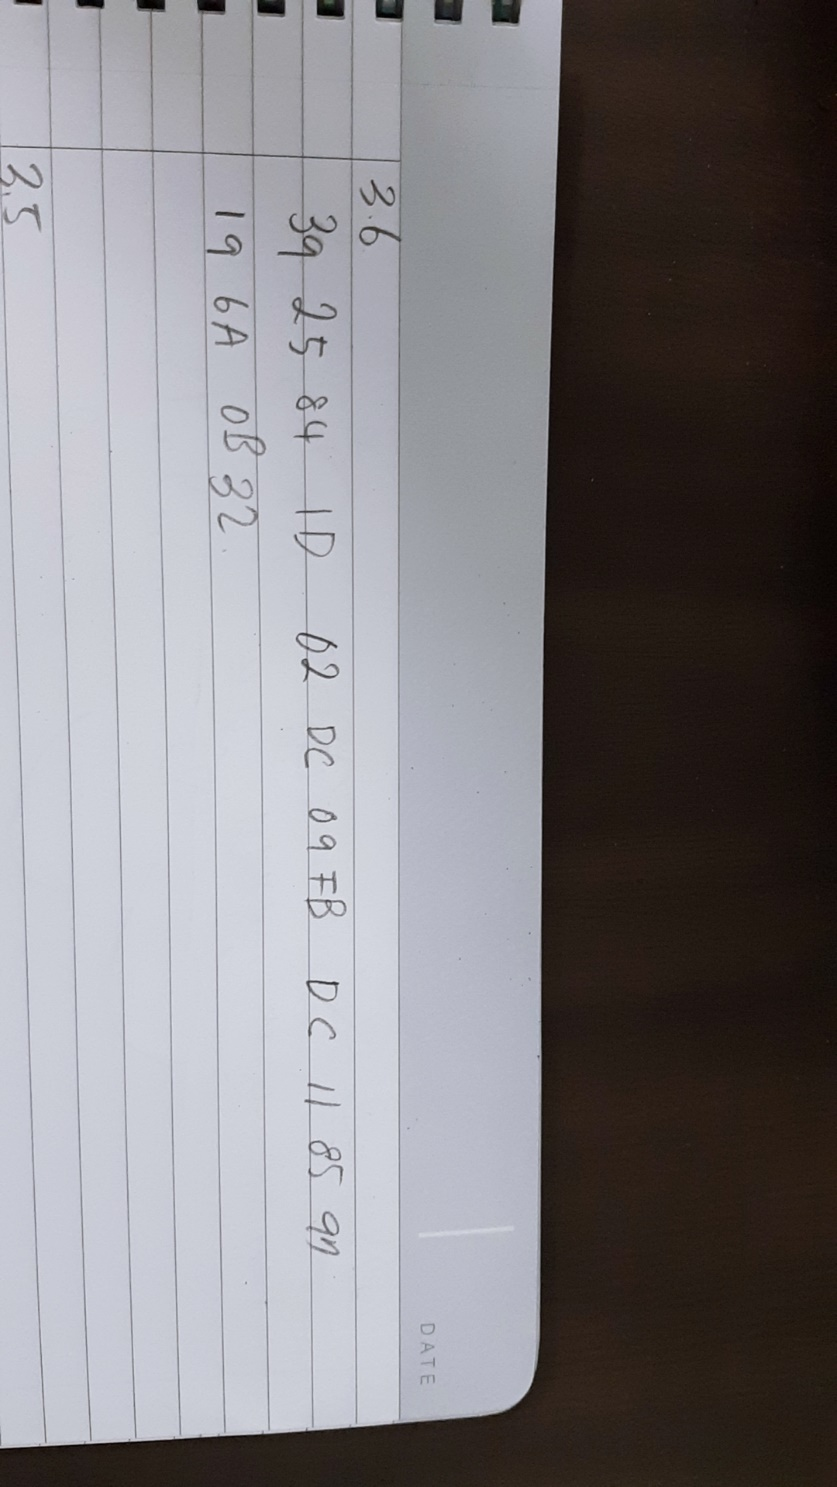 DATE
3.6
39 25 84 1D 02 DC 09 FB DC 11 85 97
19 6A 0B 32.
3.5